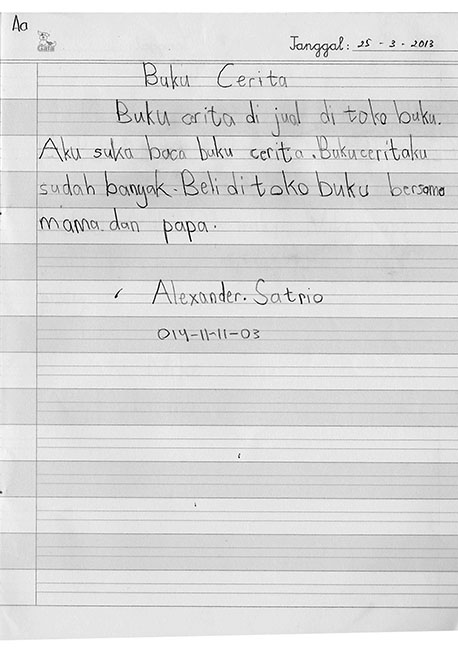 Aa
Gelatik
Tanggal: 25 - 3 - 2013
Buku Cerita
Buku crita di jual di toko buku.
Aku suka baca buku cerita. Buku ceritaku
sudah banyak. Beli di toko buku bersama
mama dan papa.
Alexander. Satrio
014-11-11-03